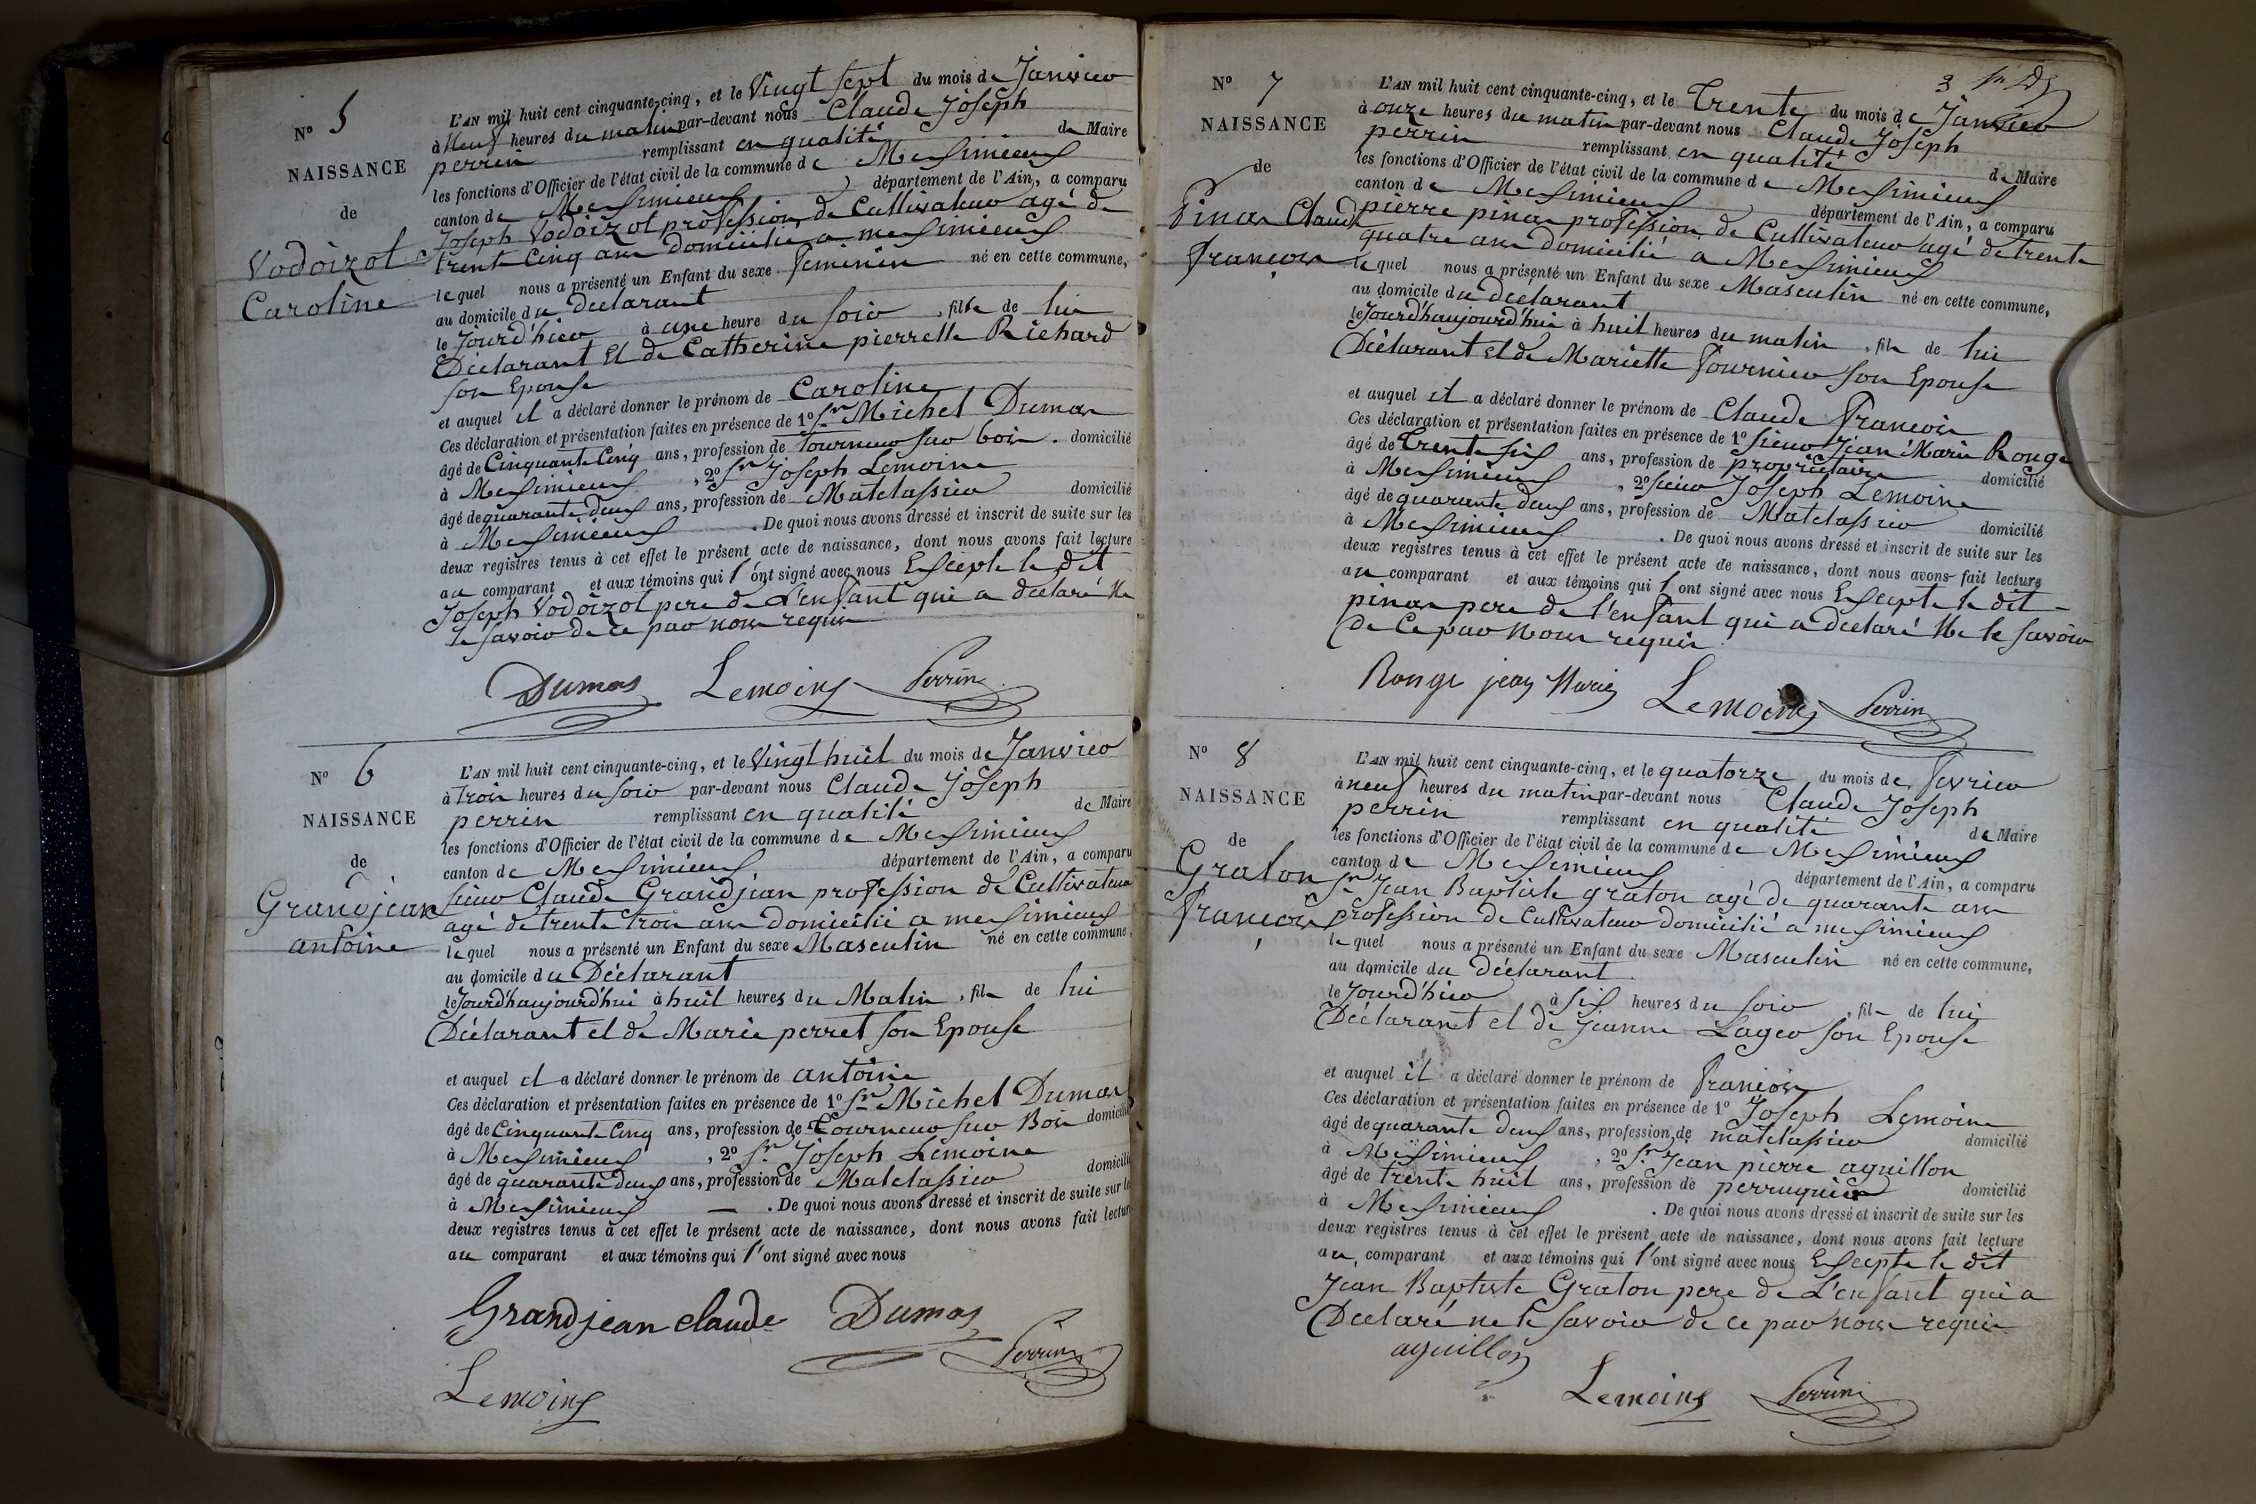 N° 5
NAISSANCE
de
Vodoizot
Caroline
L'AN mil huit cent cinquante-cinq, et le Vingt sept du mois de Janvier
à Neuf heures du matin par-devant nous Claude Joseph
perrin remplissant en qualité de Maire
les fonctions d'Officier de l'état civil de la commune de Meximieux
canton de Meximieux, département de l'Ain, a comparu
Joseph Vodoizot profession de Cultivateur agé de
trente Cinq ans domicilié a meximieux
lequel nous a présenté un Enfant du sexe feminin né en cette commune,
au domicile du declarant
le Jourd'hier à une heure du soir, fille de lui
Déclarant Et de Catherine pierrette Richard
son Epouse
et auquel il a déclaré donner le prénom de Caroline
Ces déclaration et présentation faites en présence de 1° Sr Michel Dumas
âgé de Cinquante Cinq ans, profession de Tourneur sur bois. domicilié
à Meximieux, 2° Sr Joseph Lemoine
âgé de quarante deux ans, profession de Matelassier domicilié
à Meximieux. De quoi nous avons dressé et inscrit de suite sur les
deux registres tenus à cet effet le présent acte de naissance, dont nous avons fait lecture
au comparant et aux témoins qui l'ont signé avec nous Excepte le dit
Joseph Vodoizot pere de L'enfant qui a declaré Ne
le savoir de ce par nous requis
Dumas Lemoine Perrin
N° 6
NAISSANCE
de
Grandjean
antoine
L'AN mil huit cent cinquante-cinq, et le Vingt huit du mois de Janvier
à trois heures du soir par-devant nous Claude Joseph
perrin remplissant en qualité de Maire
les fonctions d'Officier de l'état civil de la commune de Meximieux
canton de Meximieux département de l'Ain, a comparu
sieur Claude Grandjean profession de Cultivateur
agé de trente trois ans domicilié a meximieux
lequel nous a présenté un Enfant du sexe Masculin né en cette commune,
au domicile du Déclarant
le Jourd'haujourd'hui à huit heures du Matin, fils de lui
Déclarant et de Marie perret son Epouse
et auquel il a déclaré donner le prénom de antoine
Ces déclaration et présentation faites en présence de 1° Sr Michel Dumas
âgé de Cinquante Cinq ans, profession de Tourneur sur Bois domicilié
à Meximieux, 2° Sr Joseph Lemoine
âgé de quarante deux ans, profession de Matelassier domicilié
à Meximieux — . De quoi nous avons dressé et inscrit de suite sur les
deux registres tenus à cet effet le présent acte de naissance, dont nous avons fait lecture
au comparant et aux témoins qui l'ont signé avec nous
Grandjean claude Dumas
Perrin
Lemoine
3
N° 7
NAISSANCE
de
Pinas Claude
françois
L'AN mil huit cent cinquante-cinq, et le Trente du mois de Janvier
à onze heures du matin par-devant nous Claude Joseph
perrin remplissant en qualité de Maire
les fonctions d'Officier de l'état civil de la commune de Meximieux
canton de Meximieux, département de l'Ain, a comparu
pierre pinas profession de Cultivateur agé de trente
quatre ans domicilié a Meximieux
lequel nous a présenté un Enfant du sexe Masculin né en cette commune,
au domicile du declarant
le Jourd'haujourd'hui à huit heures du matin, fils de lui
Déclarant et de Mariette fournier son Epouse
et auquel il a déclaré donner le prénom de Claude françois
Ces déclaration et présentation faites en présence de 1° sieur Jean Marie Ronge
âgé de Trente six ans, profession de propriétaire domicilié
à Meximieux, 2° sieur Joseph Lemoine
âgé de quarante deux ans, profession de Matelassier domicilié
à Meximieux. De quoi nous avons dressé et inscrit de suite sur les
deux registres tenus à cet effet le présent acte de naissance, dont nous avons fait lecture
au comparant et aux témoins qui l'ont signé avec nous Excepte le dit
pinas pere de l'enfant qui a declaré Ne le savoir
de Ce par Nous requis
Ronge jean Marie Lemoine Perrin
N° 8
NAISSANCE
de
Graton
françois
L'AN mil huit cent cinquante-cinq, et le quatorze du mois de fevrier
à neuf heures du matin par-devant nous Claude Joseph
perrin remplissant en qualité de Maire
les fonctions d'Officier de l'état civil de la commune de Meximieux
canton de Meximieux département de l'Ain, a comparu
Sr Jean Baptiste graton agé de quarante ans
profession de Cultivateur domicilié a meximieux
lequel nous a présenté un Enfant du sexe Masculin né en cette commune,
au domicile du déclarant
le Jourd'hier à six heures du soir, fils de lui
Déclarant et de Jeanne Lager son Epouse
et auquel il a déclaré donner le prénom de françois
Ces déclaration et présentation faites en présence de 1° Joseph Lemoine
âgé de quarante deux ans, profession de matelassier domicilié
à Meximieux, 2° Sr Jean pierre aguillon
âgé de trente huit ans, profession de perruquier domicilié
à Meximieux. De quoi nous avons dressé et inscrit de suite sur les
deux registres tenus à cet effet le présent acte de naissance, dont nous avons fait lecture
au comparant et aux témoins qui l'ont signé avec nous Excepte le dit
Jean Baptiste Graton pere de L'enfant qui a
Declaré ne le savoir de ce par nous requis
aguillon
Lemoine Perrin